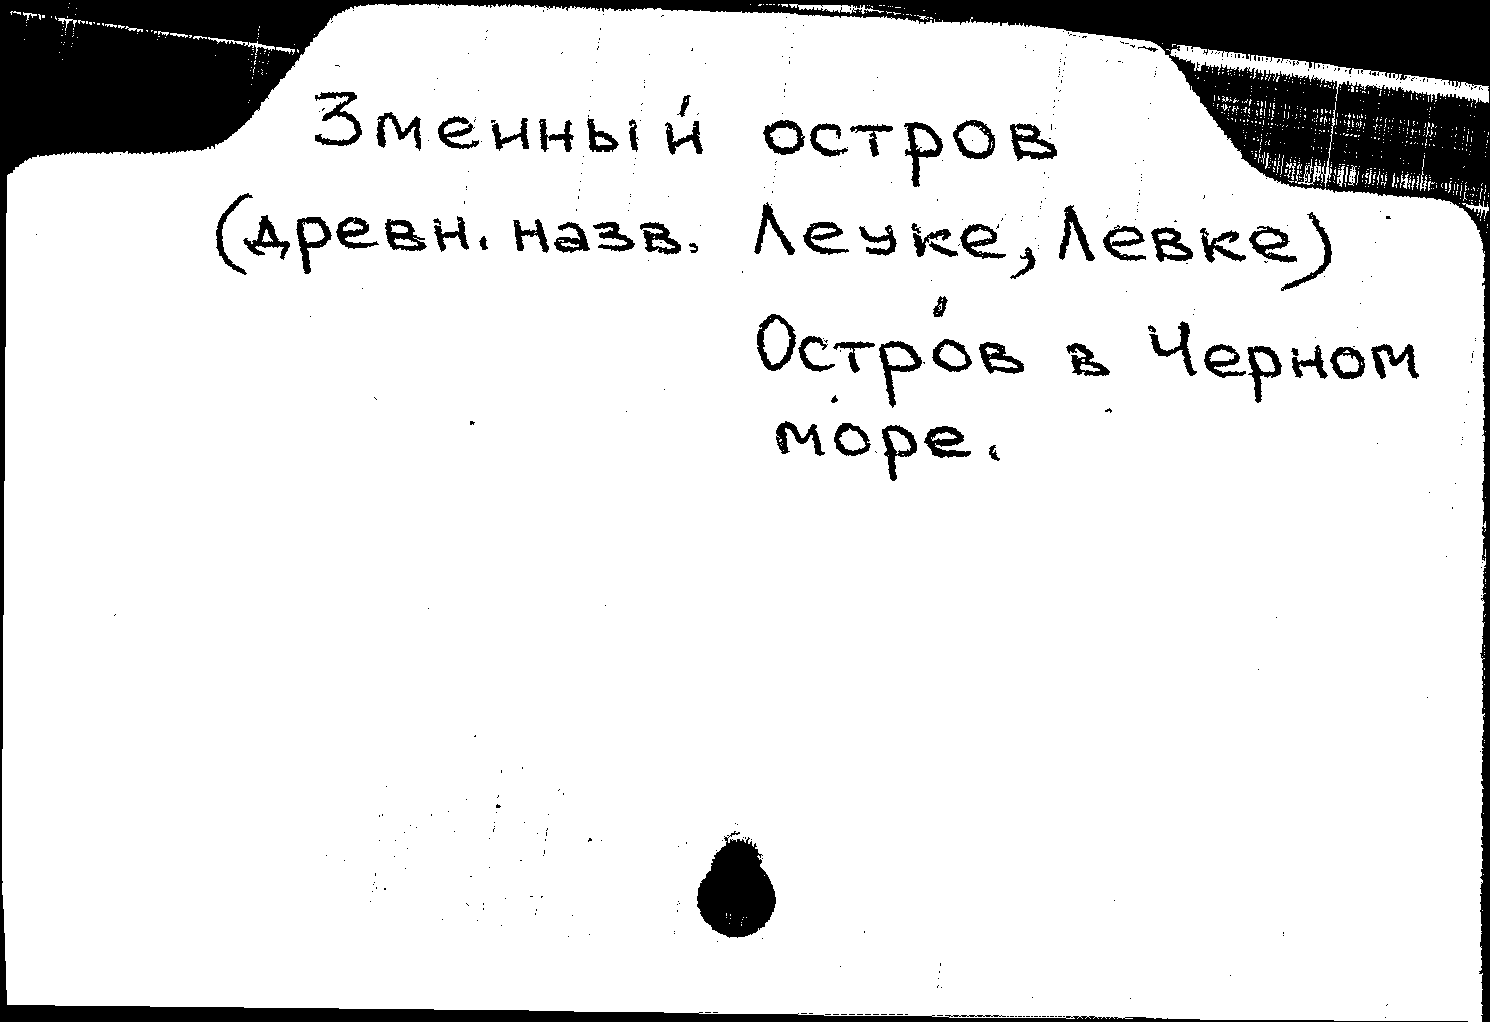 Зменный остров
(древн. назв. Леуке, Левке)
Остров в Черном
море.